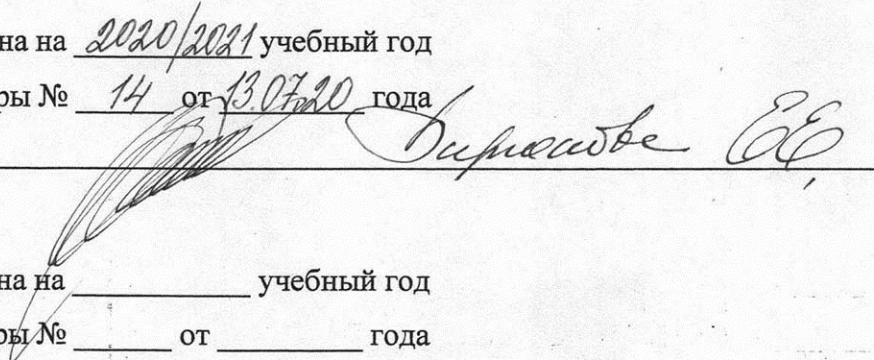 на на 2020/2021 учебный год
ры № 14 от 13.07.20 года
ЕЕ,
на на ___ учебный год
ры № ___ от ___ года